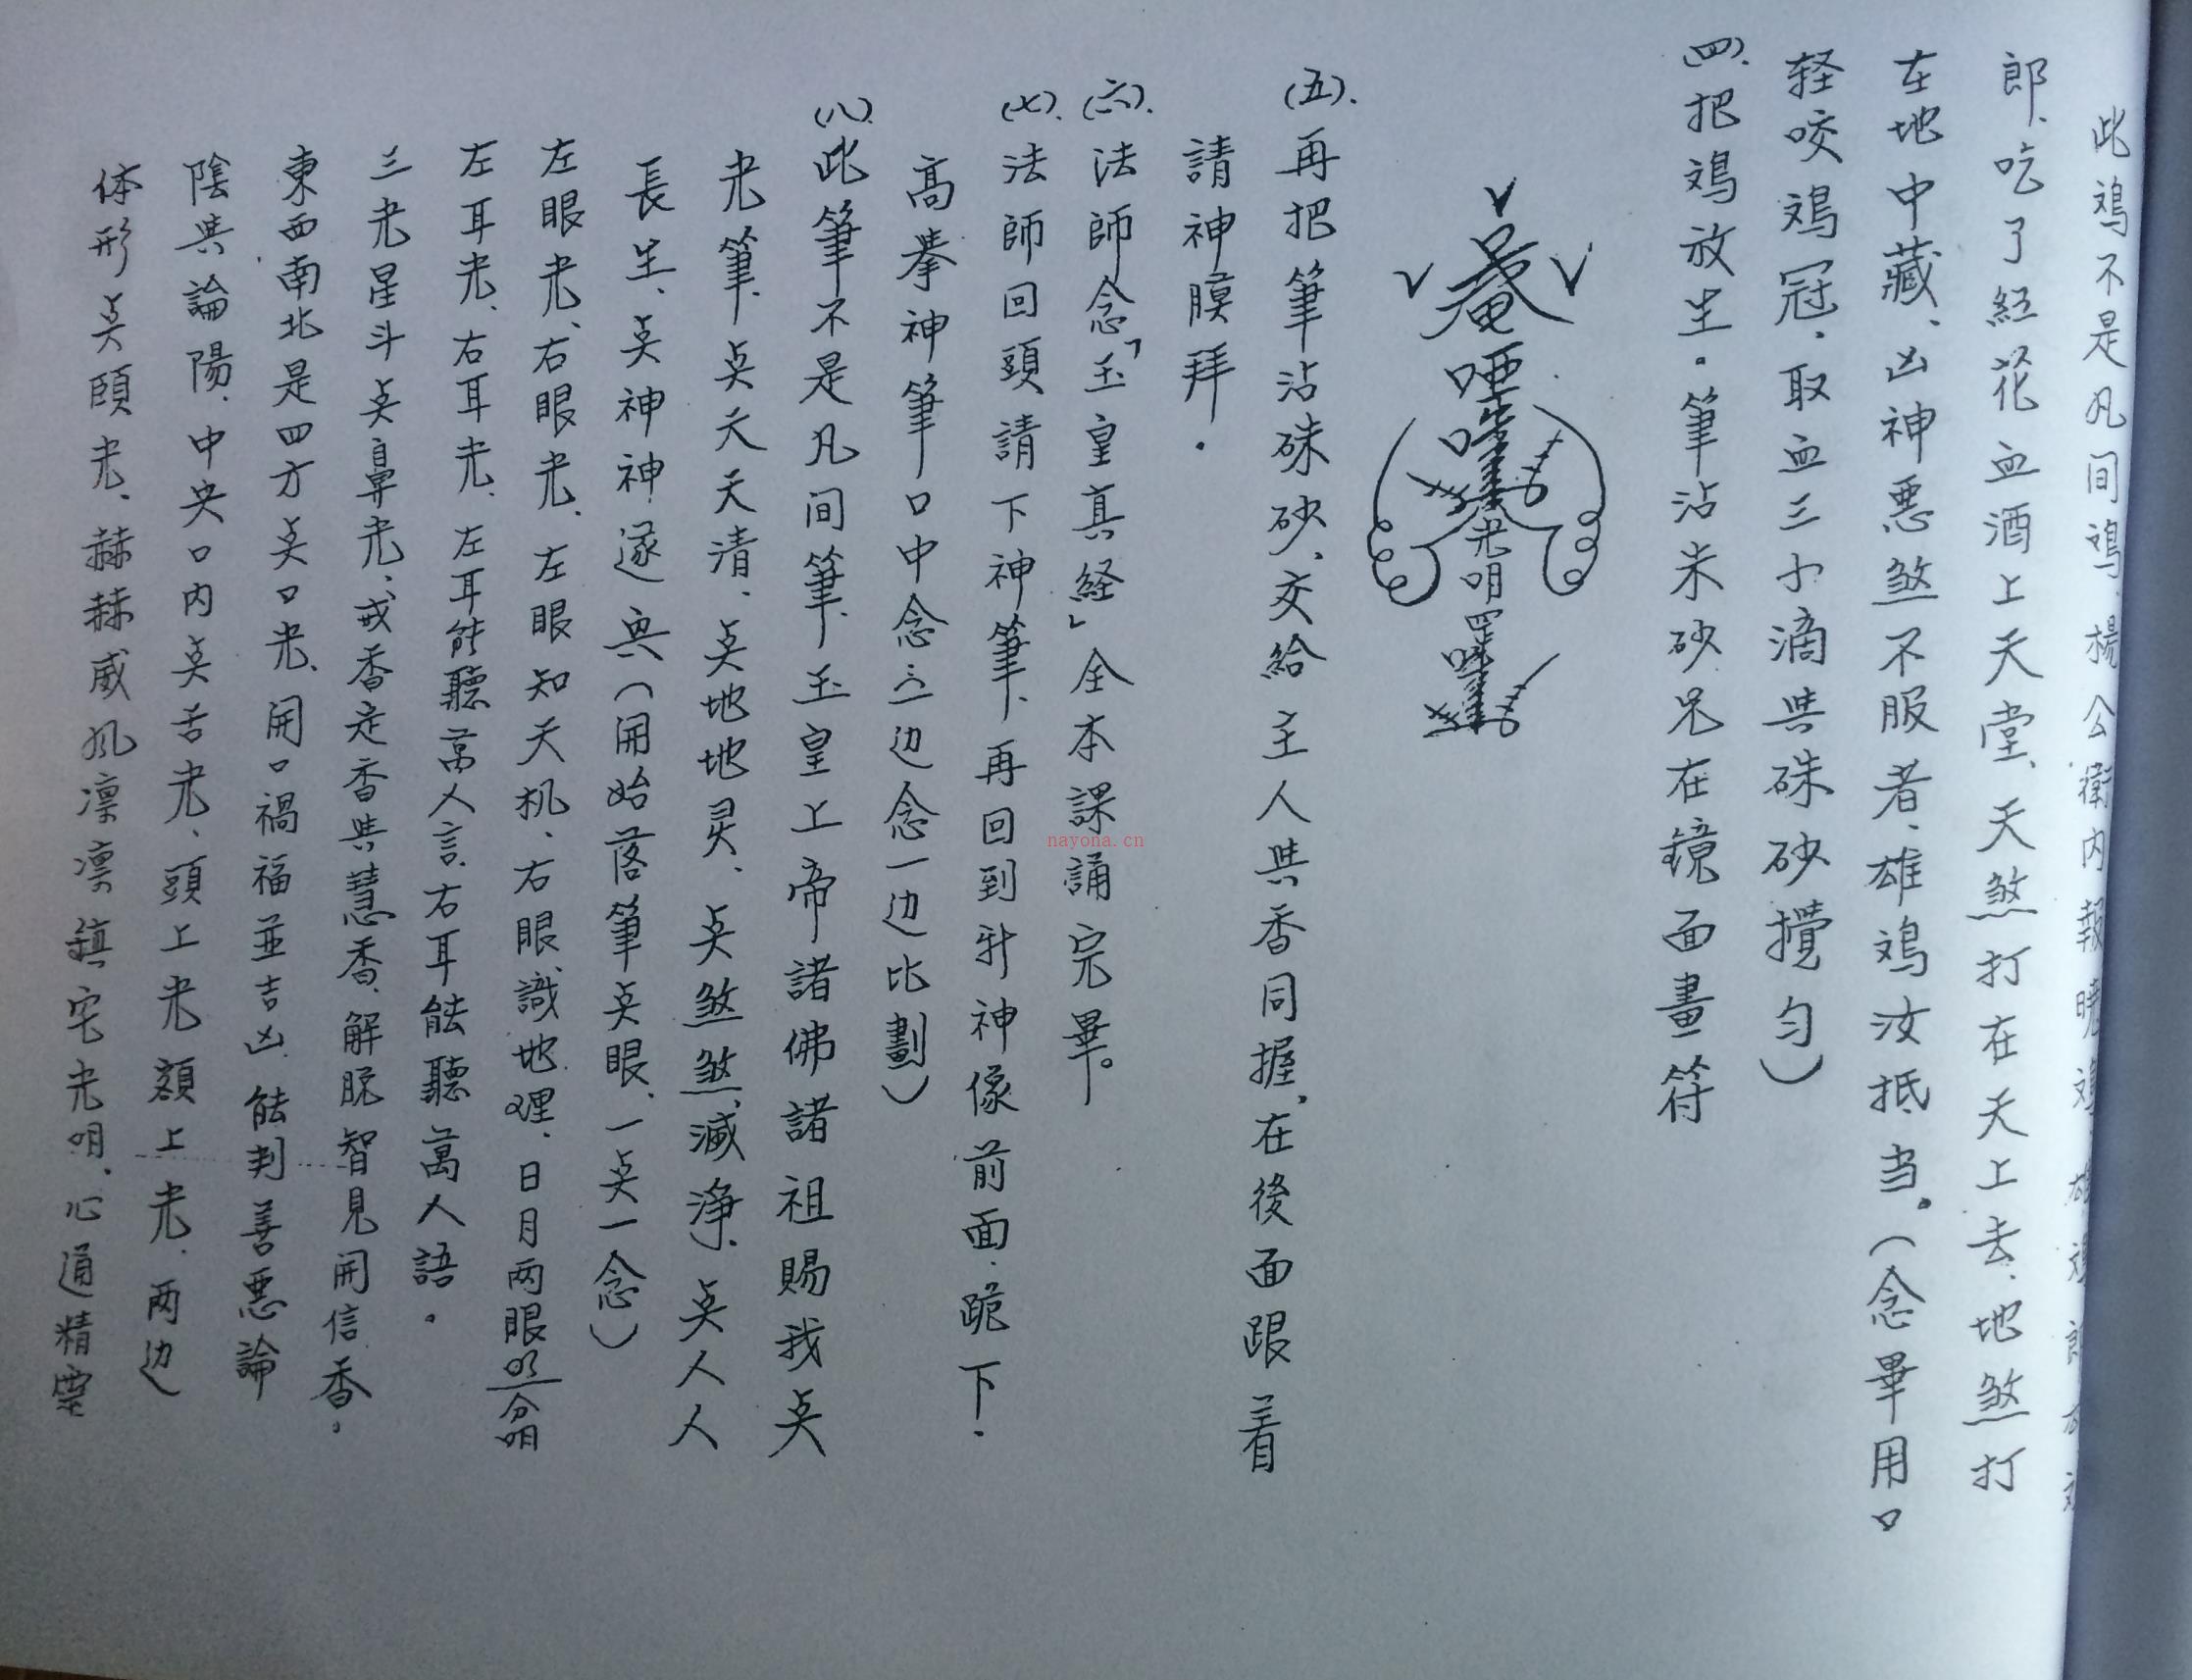 此鳮不是凡间鳮、楊公衛内報曉鳮、雄鳮
郎、吃了紅花血酒上天堂、天煞打在天上去、地煞打
在地中藏、凶神悪煞不服者、雄鳮汝抵当。（念畢用口
轻咬鳮冠、取血三小滴與硃砂攪匀）
(四)、把鳮放生。筆沾朱砂兄在鏡面畫符
光明
(五)、再把筆沾硃砂、交給主人與香同握、在後面跟着
請神膜拜。
(六)、法師念「玉皇真経」全本課誦完畢。
(七)、法師回頭請下神筆、再回到新神像前面、跪下、
高拳神筆口中念（边念一边比劃）
(八)、此筆不是凡间筆、玉皇上帝諸佛諸祖賜我奌
光筆、奌天天清、奌地地灵、奌煞煞滅净、奌人人
長生、奌神神遂興（開始落筆奌眼、一奌一念）
左眼光、右眼光、左眼知天机、右眼識地理、日月两眼照分明
左耳光、右耳光、左耳能聽萬人言、右耳能聽萬人語。
三光星斗奌鼻光、戒香定香與慧香、解脱智見開信香。
東西南北是四方奌口光、開口禍福並吉凶、能判善悪論
陰與論陽、中央口内奌舌光、頭上光額上光、两边
体形奌頤光、赫赫威风凛凛鎮宅光明、心通精靈
nayona.cn